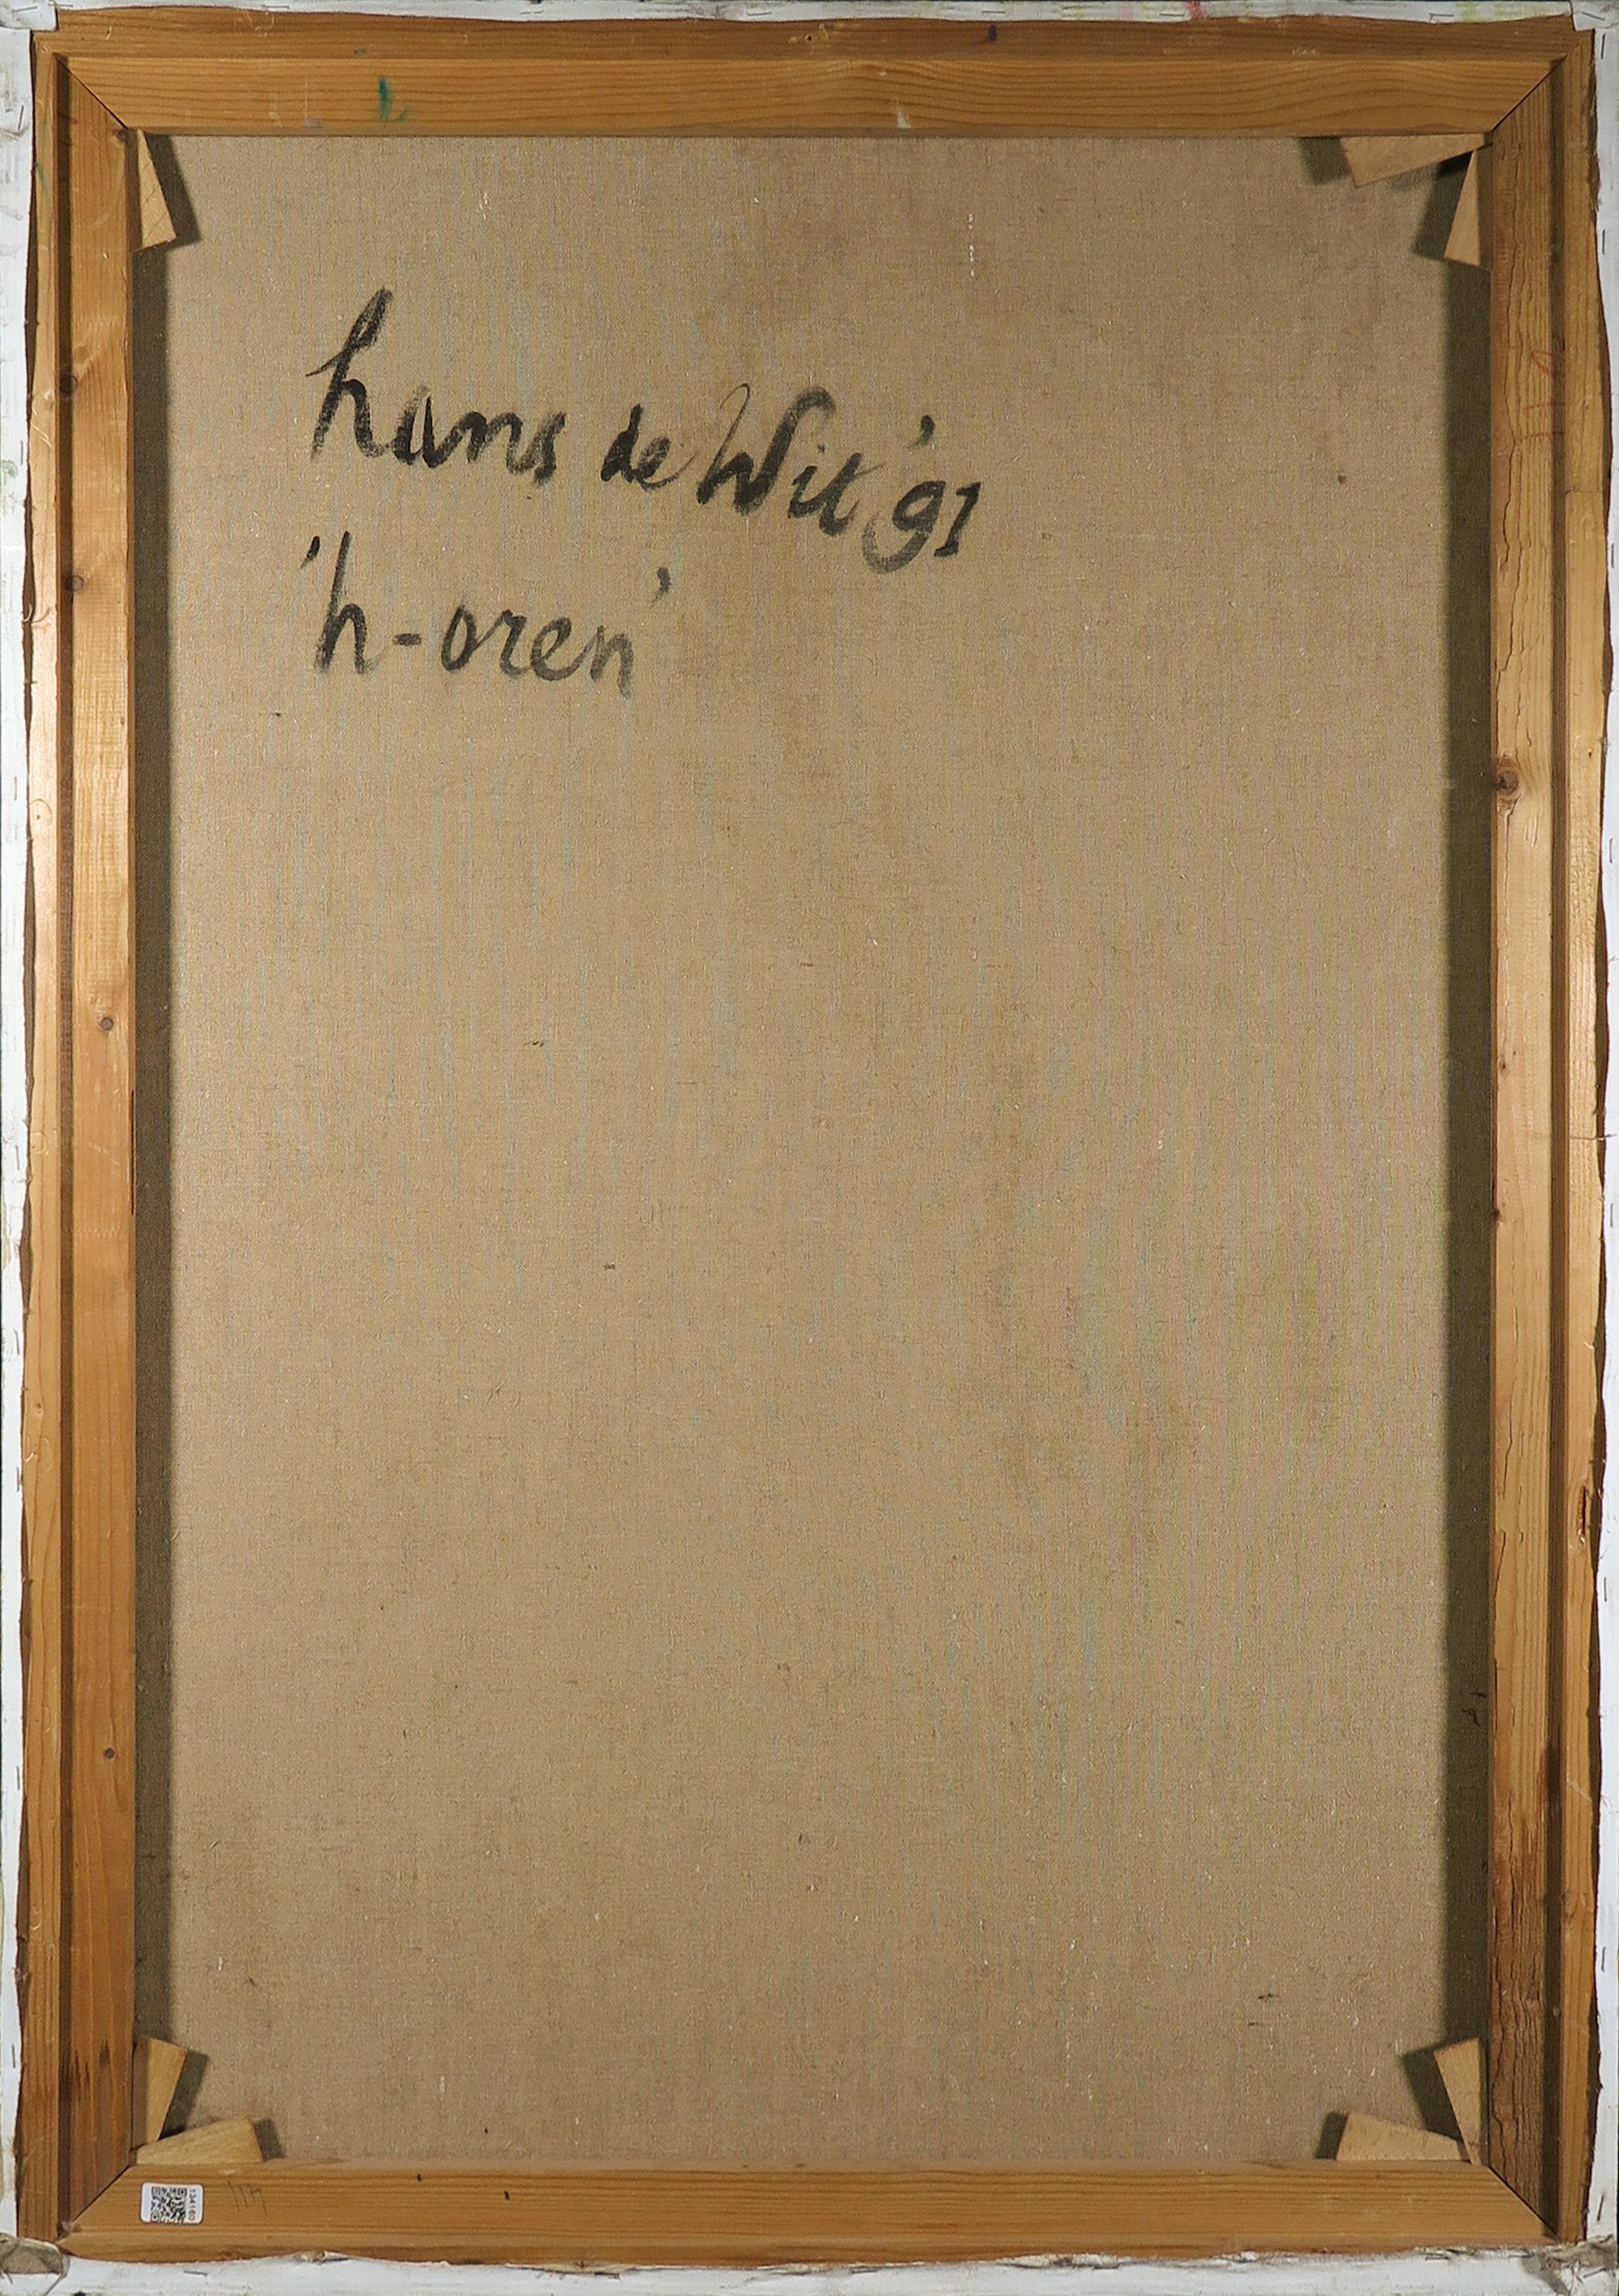 hans de Wit '91
'h-oren'